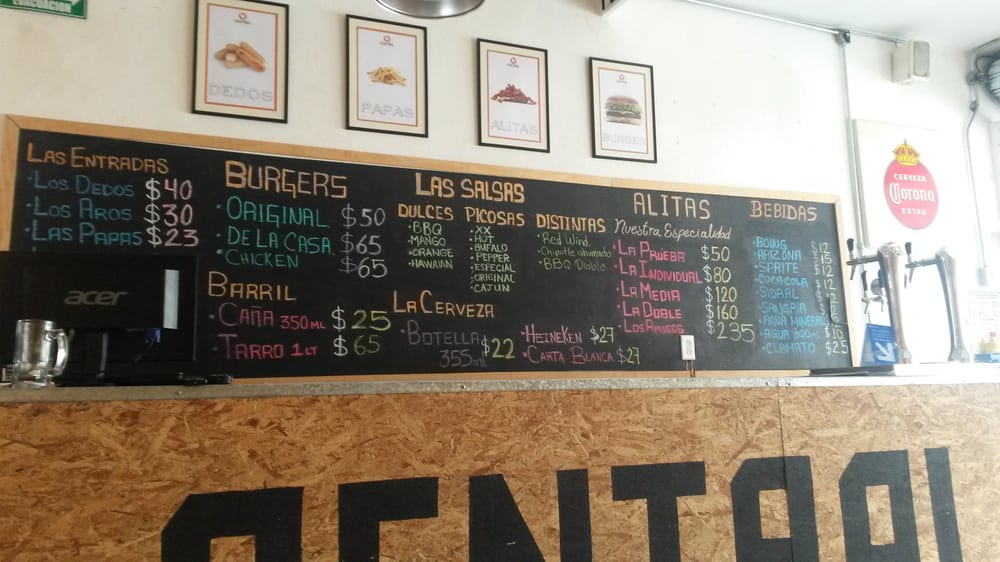 EVACUACIÓN
DEDOS
PAPAS
ALITAS
BURGER
CERVEZA
Corona
EXTRA
LAS ENTRADAS
· LOS DEDOS $40
· LOS AROS $30
· LAS PAPAS $23
BURGERS
· ORIGINAL $50
· DE LA CASA $65
· CHICKEN $65
BARRIL
· CAÑA 350 ML $25
· TARRO 1 LT $65
LAS SALSAS
DULCES
· BBQ
· MANGO
· ORANGE
· HAWAIIAN
PICOSAS
· XX
· HOT
· BUFALO
· PEPPER
· ESPECIAL
· ORIGINAL
· CAJUN
DISTINTAS
· Red Wind
· Chipotle ahumado
· BBQ Diablo
LA CERVEZA
· BOTELLA 355ml $22
· HEINEKEN $27
· CARTA BLANCA $27
ALITAS
Nuestra Especialidad
· LA PRUEBA $50
· LA INDIVIDUAL $80
· LA MEDIA $120
· LA DOBLE $160
· LOS AMIGOS $235
BEBIDAS
· BOING $12
· ARIZONA $15
· SPRITE $12
· COCA COLA $12
· SIDRAL
· SANGRIA
· AGUA MINERAL
· AGUA
· CLAMATO $25
acer
CENTRAL